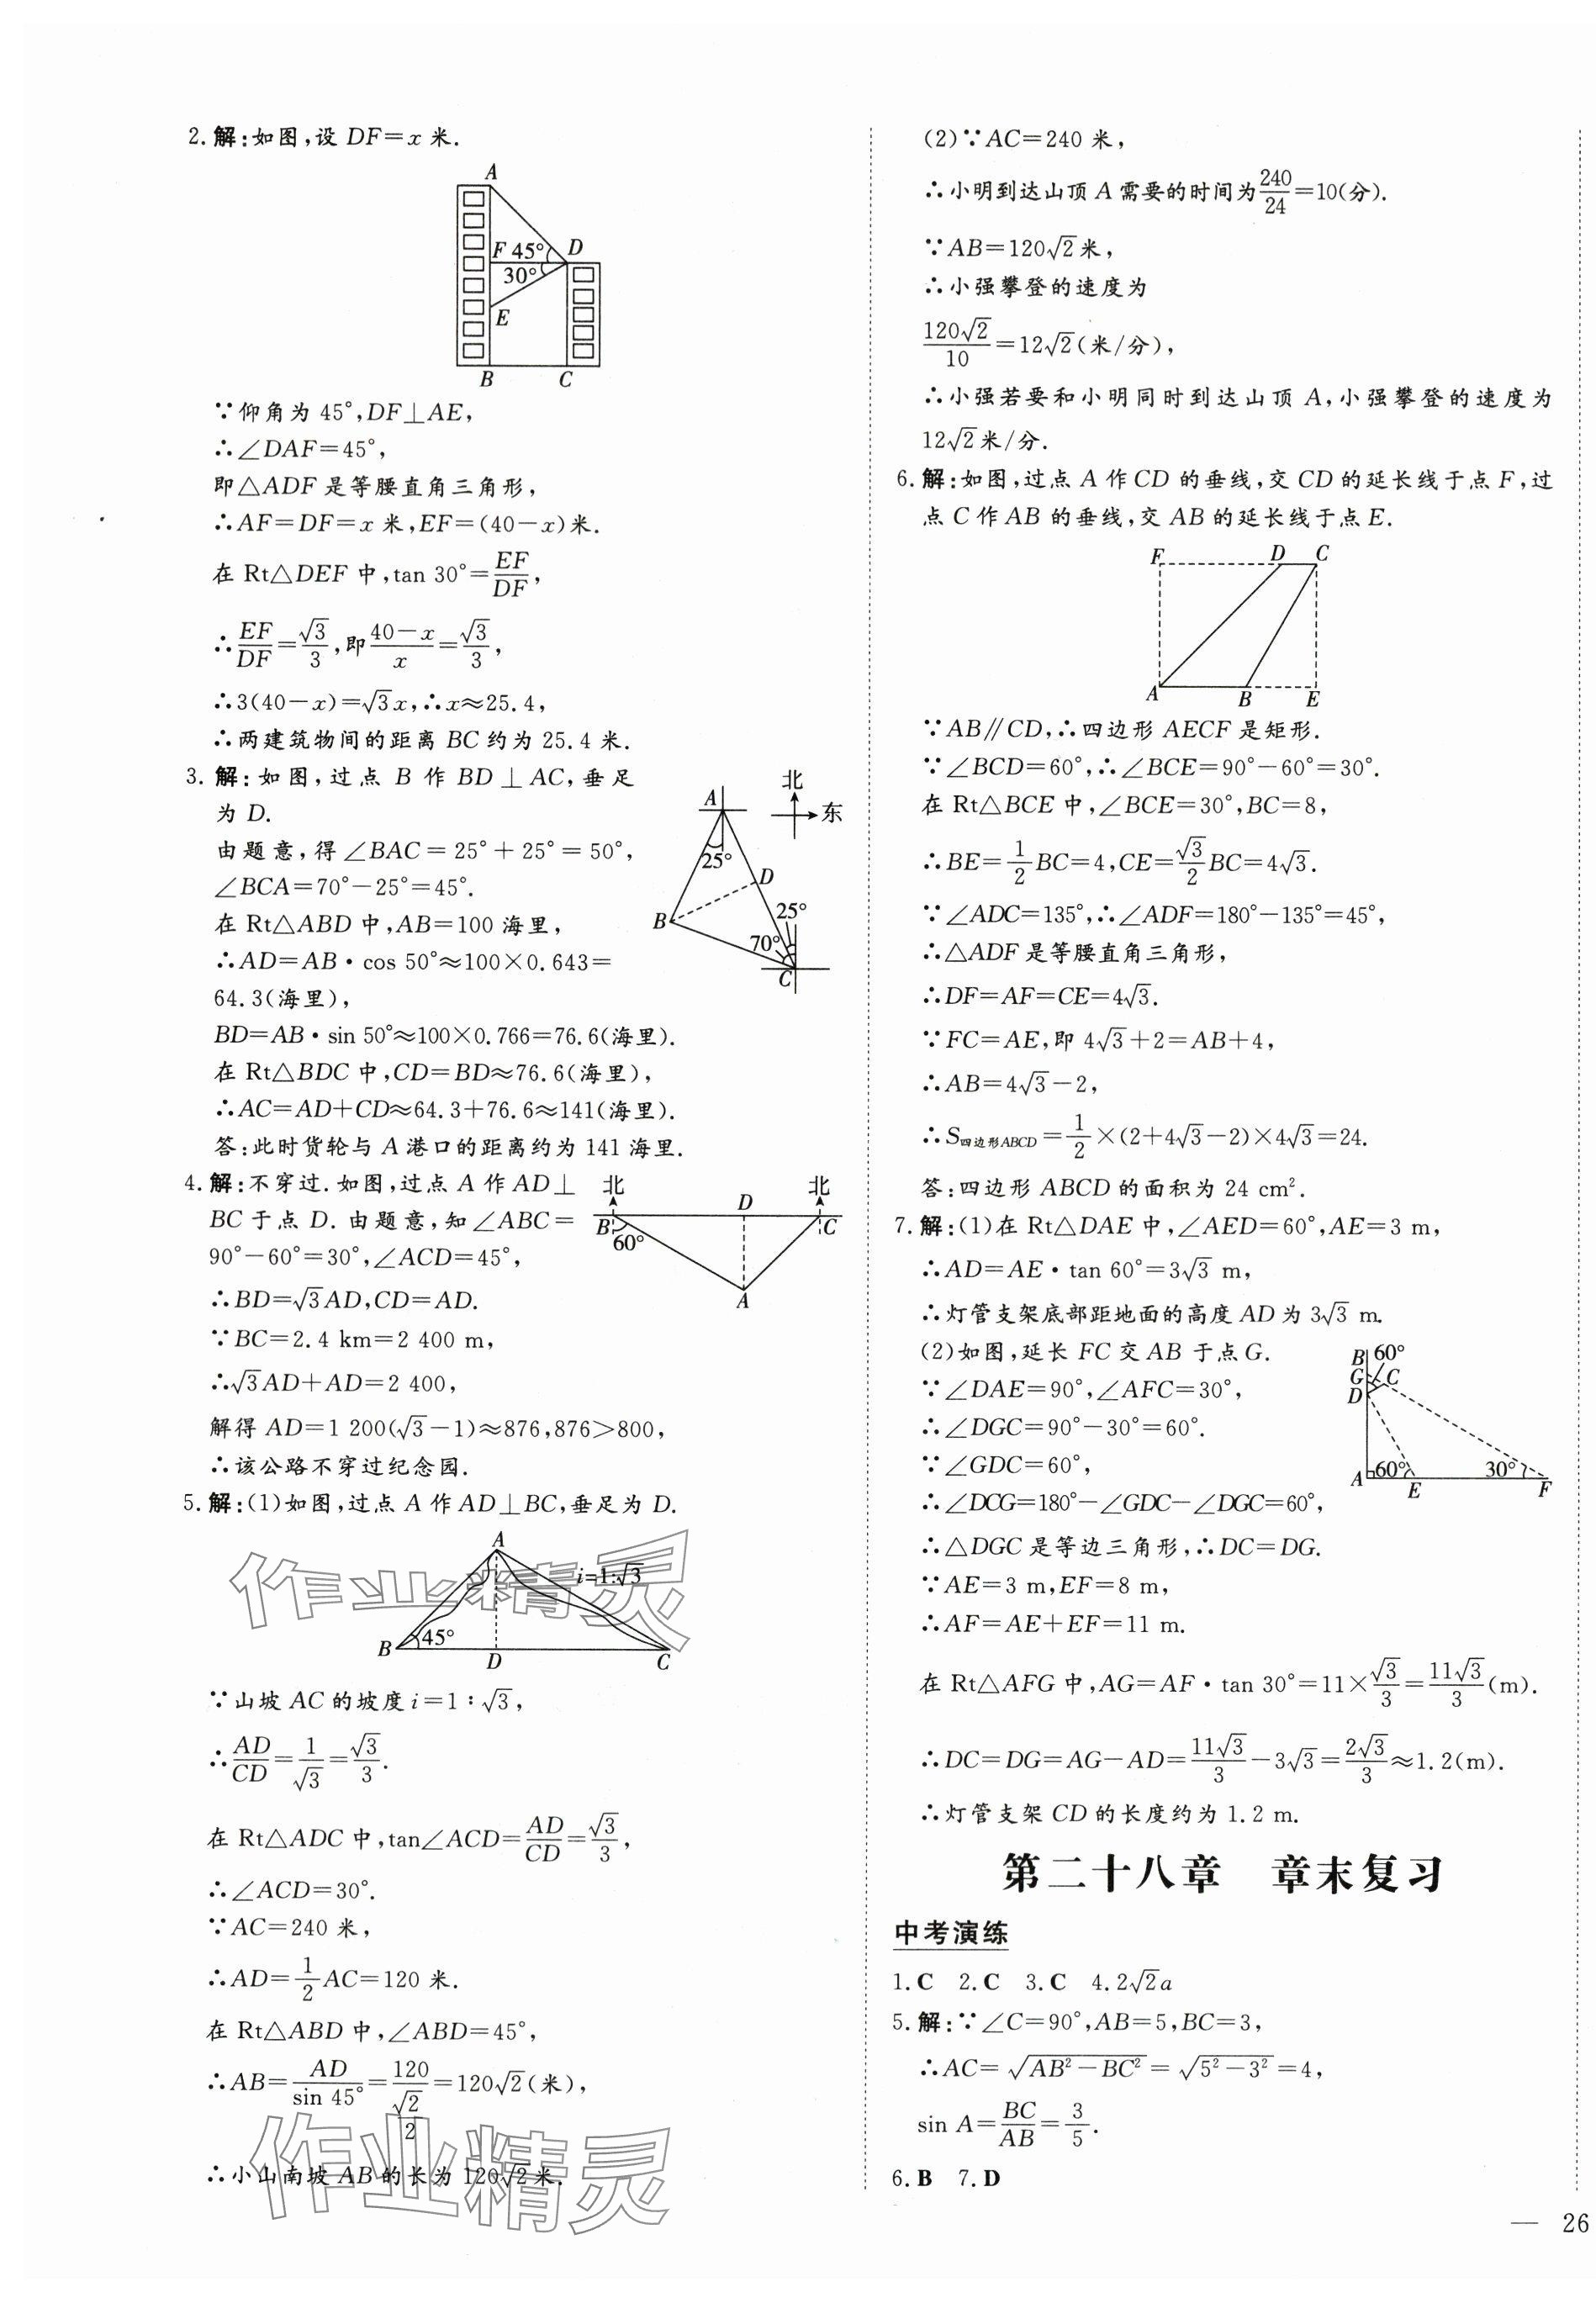 2.解:如图,设 DF=x 米.
A
F 45° D
30°
E
B C
∵仰角为 45°,DF⊥AE,
∴∠DAF=45°,
即△ADF 是等腰直角三角形,
∴AF=DF=x 米,EF=(40-x)米.
在 Rt△DEF 中,tan 30°=EF/DF,
∴EF/DF=√3/3,即(40-x)/x=√3/3,
∴3(40-x)=√3x,∴x≈25.4,
∴两建筑物间的距离 BC 约为 25.4 米.
3.解:如图,过点 B 作 BD⊥AC,垂足
为 D.
由题意,得∠BAC=25°+25°=50°,
∠BCA=70°-25°=45°.
在 Rt△ABD 中,AB=100 海里,
∴AD=AB·cos 50°≈100×0.643=
64.3(海里),
BD=AB·sin 50°≈100×0.766=76.6(海里).
在 Rt△BDC 中,CD=BD≈76.6(海里),
∴AC=AD+CD≈64.3+76.6≈141(海里).
答:此时货轮与 A 港口的距离约为 141 海里.
北
A 东
25°
D
B 25°
70°
C
4.解:不穿过.如图,过点 A 作 AD⊥
BC 于点 D.由题意,知∠ABC=
90°-60°=30°,∠ACD=45°,
∴BD=√3AD,CD=AD.
∵BC=2.4 km=2 400 m,
∴√3AD+AD=2 400,
解得 AD=1 200(√3-1)≈876,876>800,
∴该公路不穿过纪念园.
北 D 北
B C
60°
A
5.解:(1)如图,过点 A 作 AD⊥BC,垂足为 D.
A
i=1:√3
B 45°
D C
作业精灵
∵山坡 AC 的坡度 i=1∶√3,
∴AD/CD=1/√3=√3/3.
在 Rt△ADC 中,tan∠ACD=AD/CD=√3/3,
∴∠ACD=30°.
∵AC=240 米,
∴AD=1/2AC=120 米.
在 Rt△ABD 中,∠ABD=45°,
∴AB=AD/sin 45°=120/(√2/2)=120√2(米),
∴小山南坡 AB 的长为 120√2米.
作业精灵
(2)∵AC=240 米,
∴小明到达山顶 A 需要的时间为240/24=10(分).
∵AB=120√2米,
∴小强攀登的速度为
120√2/10=12√2(米/分),
∴小强若要和小明同时到达山顶 A,小强攀登的速度为
12√2米/分.
6.解:如图,过点 A 作 CD 的垂线,交 CD 的延长线于点 F,过
点 C 作 AB 的垂线,交 AB 的延长线于点 E.
F D C
A B E
∵AB∥CD,∴四边形 AECF 是矩形.
∵∠BCD=60°,∴∠BCE=90°-60°=30°.
在 Rt△BCE 中,∠BCE=30°,BC=8,
∴BE=1/2BC=4,CE=√3/2BC=4√3.
∵∠ADC=135°,∴∠ADF=180°-135°=45°,
∴△ADF 是等腰直角三角形,
∴DF=AF=CE=4√3.
∵FC=AE,即 4√3+2=AB+4,
∴AB=4√3-2,
∴S四边形ABCD=1/2×(2+4√3-2)×4√3=24.
答:四边形 ABCD 的面积为 24 cm².
7.解:(1)在 Rt△DAE 中,∠AED=60°,AE=3 m,
∴AD=AE·tan 60°=3√3 m,
∴灯管支架底部距地面的高度 AD 为 3√3 m.
(2)如图,延长 FC 交 AB 于点 G.
∵∠DAE=90°,∠AFC=30°,
∴∠DGC=90°-30°=60°.
∵∠GDC=60°,
∴∠DCG=180°-∠GDC-∠DGC=60°,
∴△DGC 是等边三角形,∴DC=DG.
∵AE=3 m,EF=8 m,
∴AF=AE+EF=11 m.
B 60°
G C
D
A 60° 30°
E F
在 Rt△AFG 中,AG=AF·tan 30°=11×√3/3=11√3/3(m).
∴DC=DG=AG-AD=11√3/3-3√3=2√3/3≈1.2(m).
∴灯管支架 CD 的长度约为 1.2 m.
第二十八章 章末复习
中考演练
1.C 2.C 3.C 4.2√2a
5.解:∵∠C=90°,AB=5,BC=3,
∴AC=√(AB²-BC²)=√(5²-3²)=4,
sin A=BC/AB=3/5.
6.B 7.D
— 26